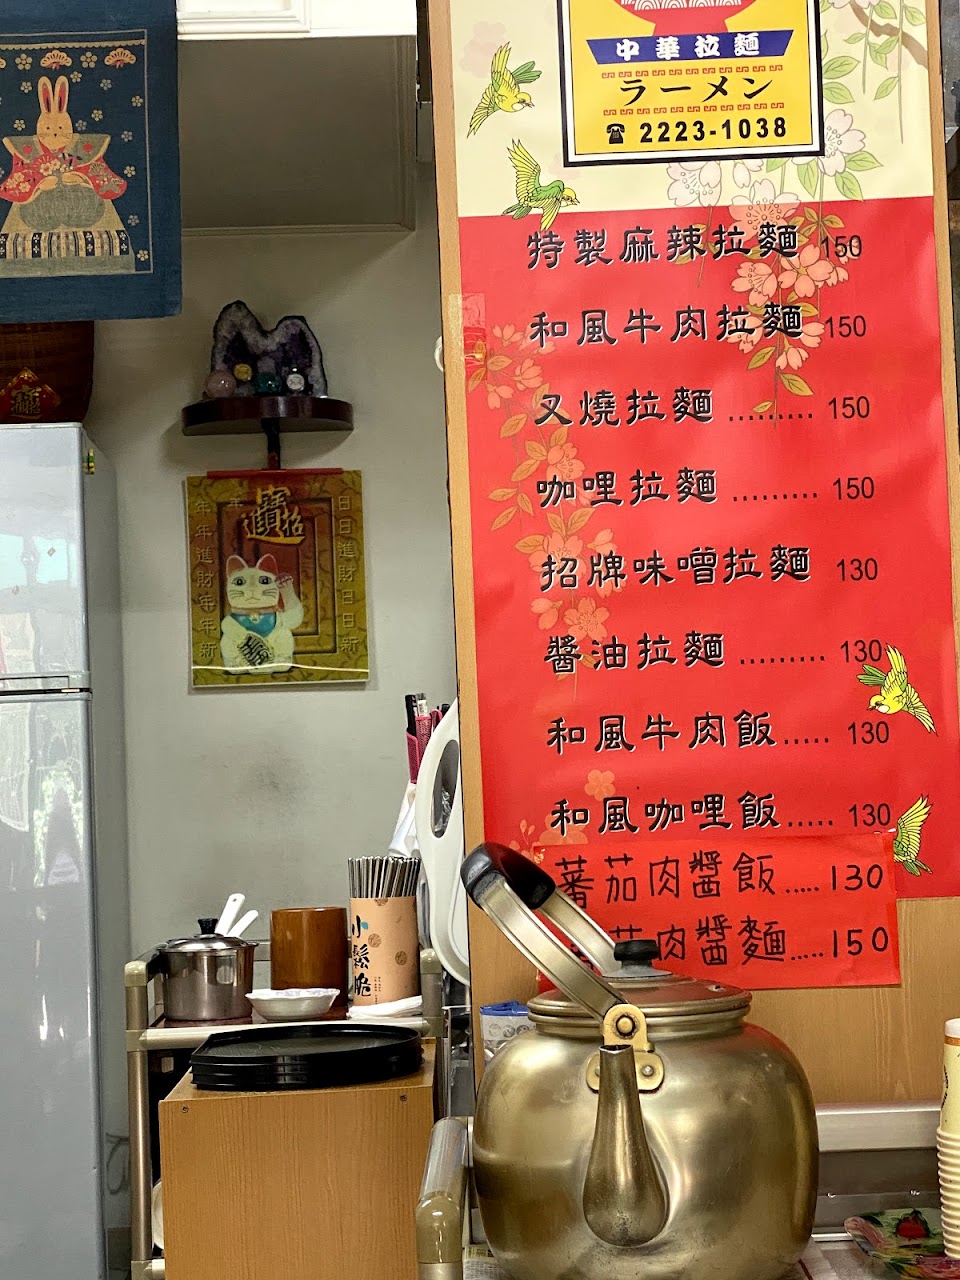 中華拉麵
ラーメン
☎ 2223-1038
特製麻辣拉麵 150
和風牛肉拉麵 150
叉燒拉麵 ......... 150
咖哩拉麵 ......... 150
招牌味噌拉麵 130
醬油拉麵 ......... 130
和風牛肉飯..... 130
和風咖哩飯..... 130
蕃茄肉醬飯.....130
茄肉醬麵.....150
招財進寶
日日進財日日新
年年進財年年新
小鬆脆